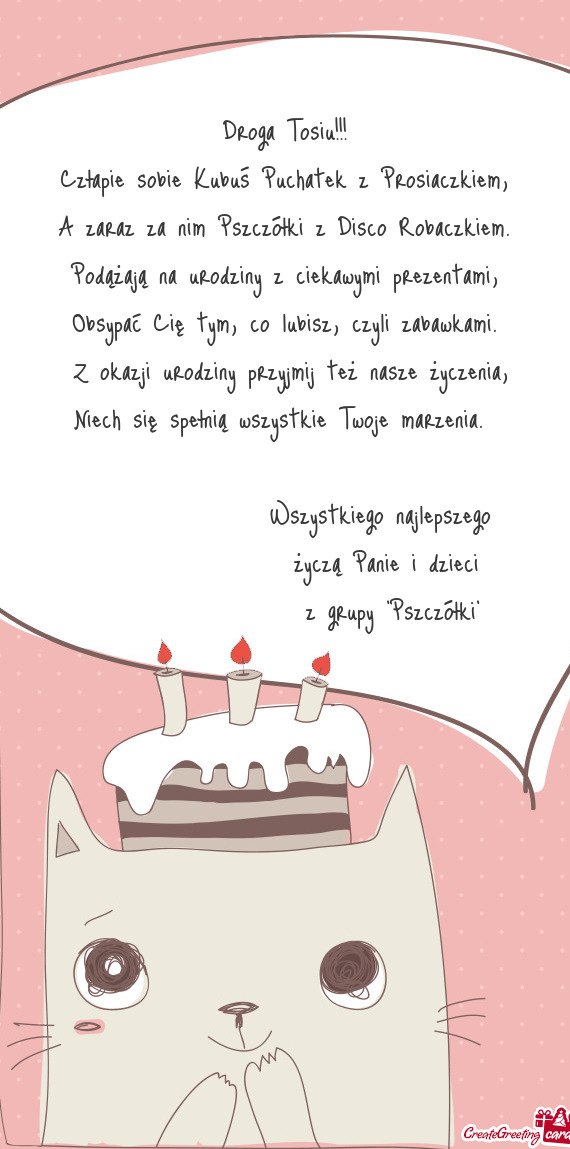 Droga Tosiu!!!
Człapie sobie Kubuś Puchatek z Prosiaczkiem,
A zaraz za nim Pszczółki z Disco Robaczkiem.
Podążają na urodziny z ciekawymi prezentami,
Obsypać Cię tym, co lubisz, czyli zabawkami.
Z okazji urodziny przyjmij też nasze życzenia,
Niech się spełnią wszystkie Twoje marzenia.
Wszystkiego najlepszego
życzą Panie i dzieci
z grupy "Pszczółki"
CreateGreeting cards